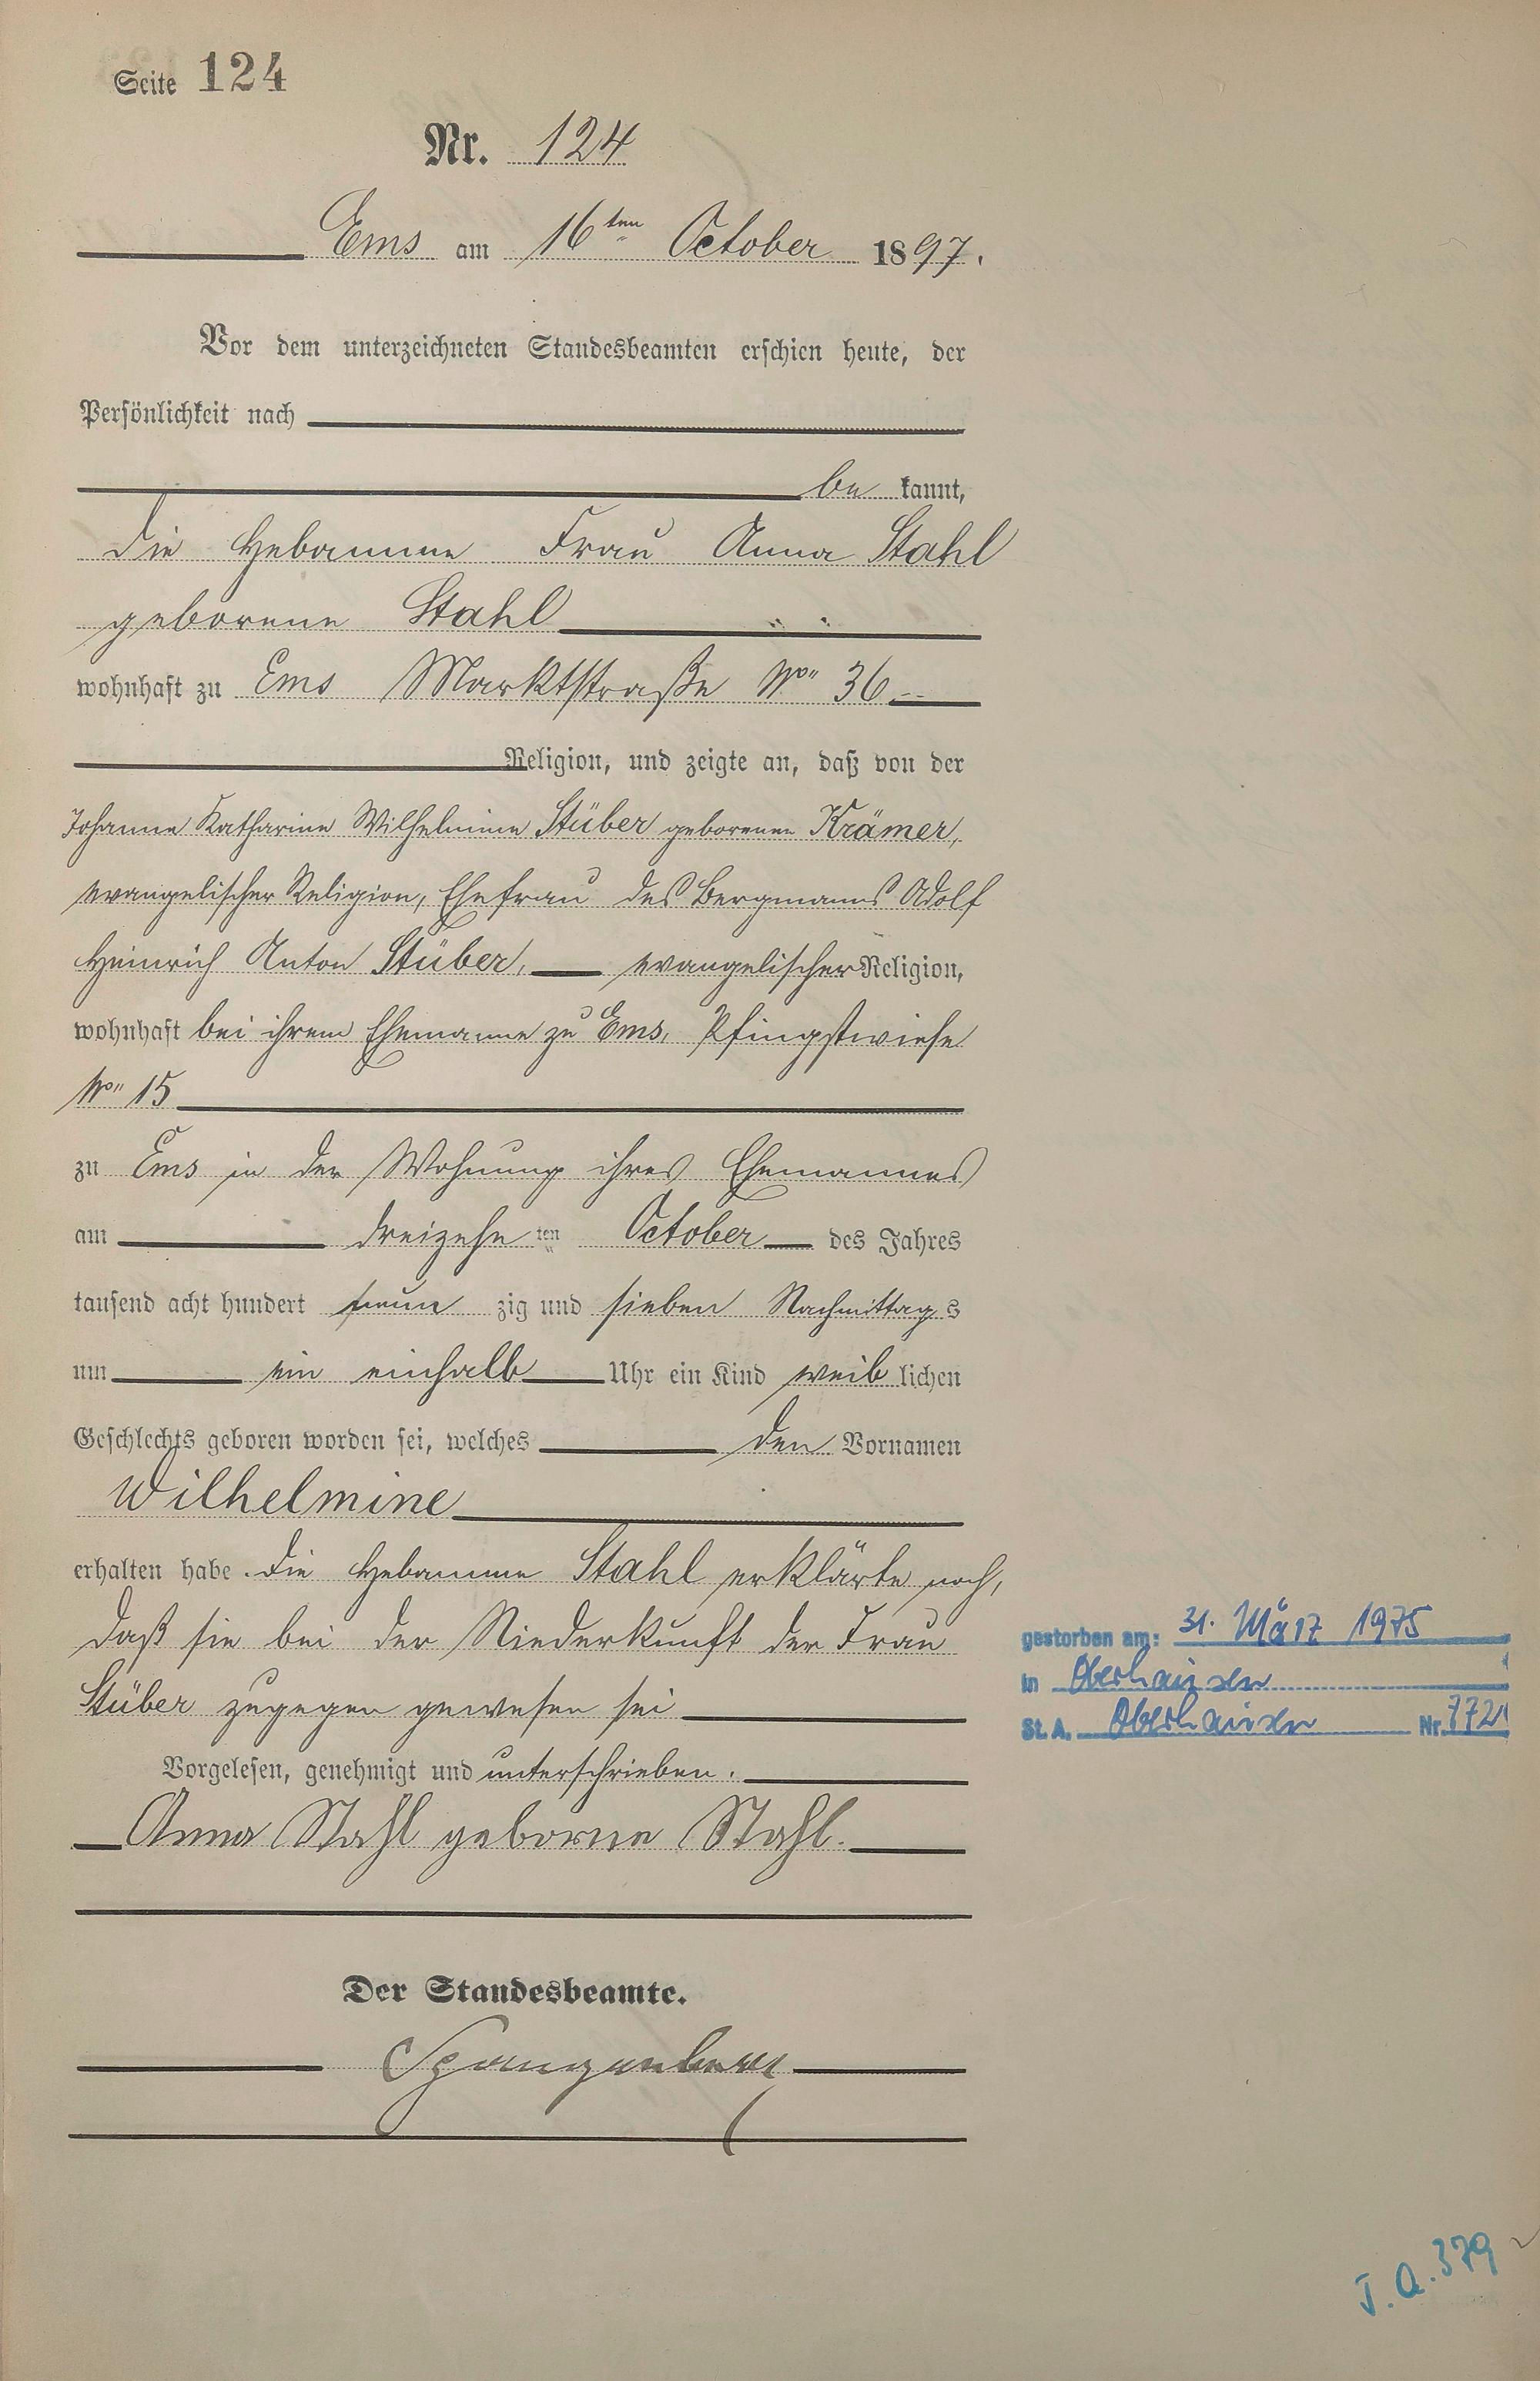 Seite 124
Nr. 124
Ems am 16ten October 1897.
Vor dem unterzeichneten Standesbeamten erschien heute, der
Persönlichkeit nach
bekannt,
die Hebamme Frau Anna Stahl
geborene Stahl
wohnhaft zu Ems Marktstraße No 36
Religion, und zeigte an, daß von der
Johanne Katharine Wilhelmine Stüber geborenen Krämer,
evangelischer Religion, Ehefrau des Bergmanns Adolf
Heinrich Anton Stüber, evangelischer Religion,
wohnhaft bei ihrem Ehemanne zu Ems, Pfingstwiese
No 15
zu Ems in der Wohnung ihres Ehemannes
am dreizehnten October des Jahres
tausend acht hundert neunzig und sieben Nachmittags
um ein einhalb Uhr ein Kind weiblichen
Geschlechts geboren worden sei, welches den Vornamen
Wilhelmine
erhalten habe. Die Hebamme Stahl erklärte noch,
daß sie bei der Niederkunft der Frau
Stüber zugegen gewesen sei
Vorgelesen, genehmigt und unterschrieben.
Anna Stahl geborne Stahl.
Der Standesbeamte.
Spangenberg
gestorben am: 31. März 1975
in Oberhausen
St. A. Oberhausen Nr. 772
J. A. 379